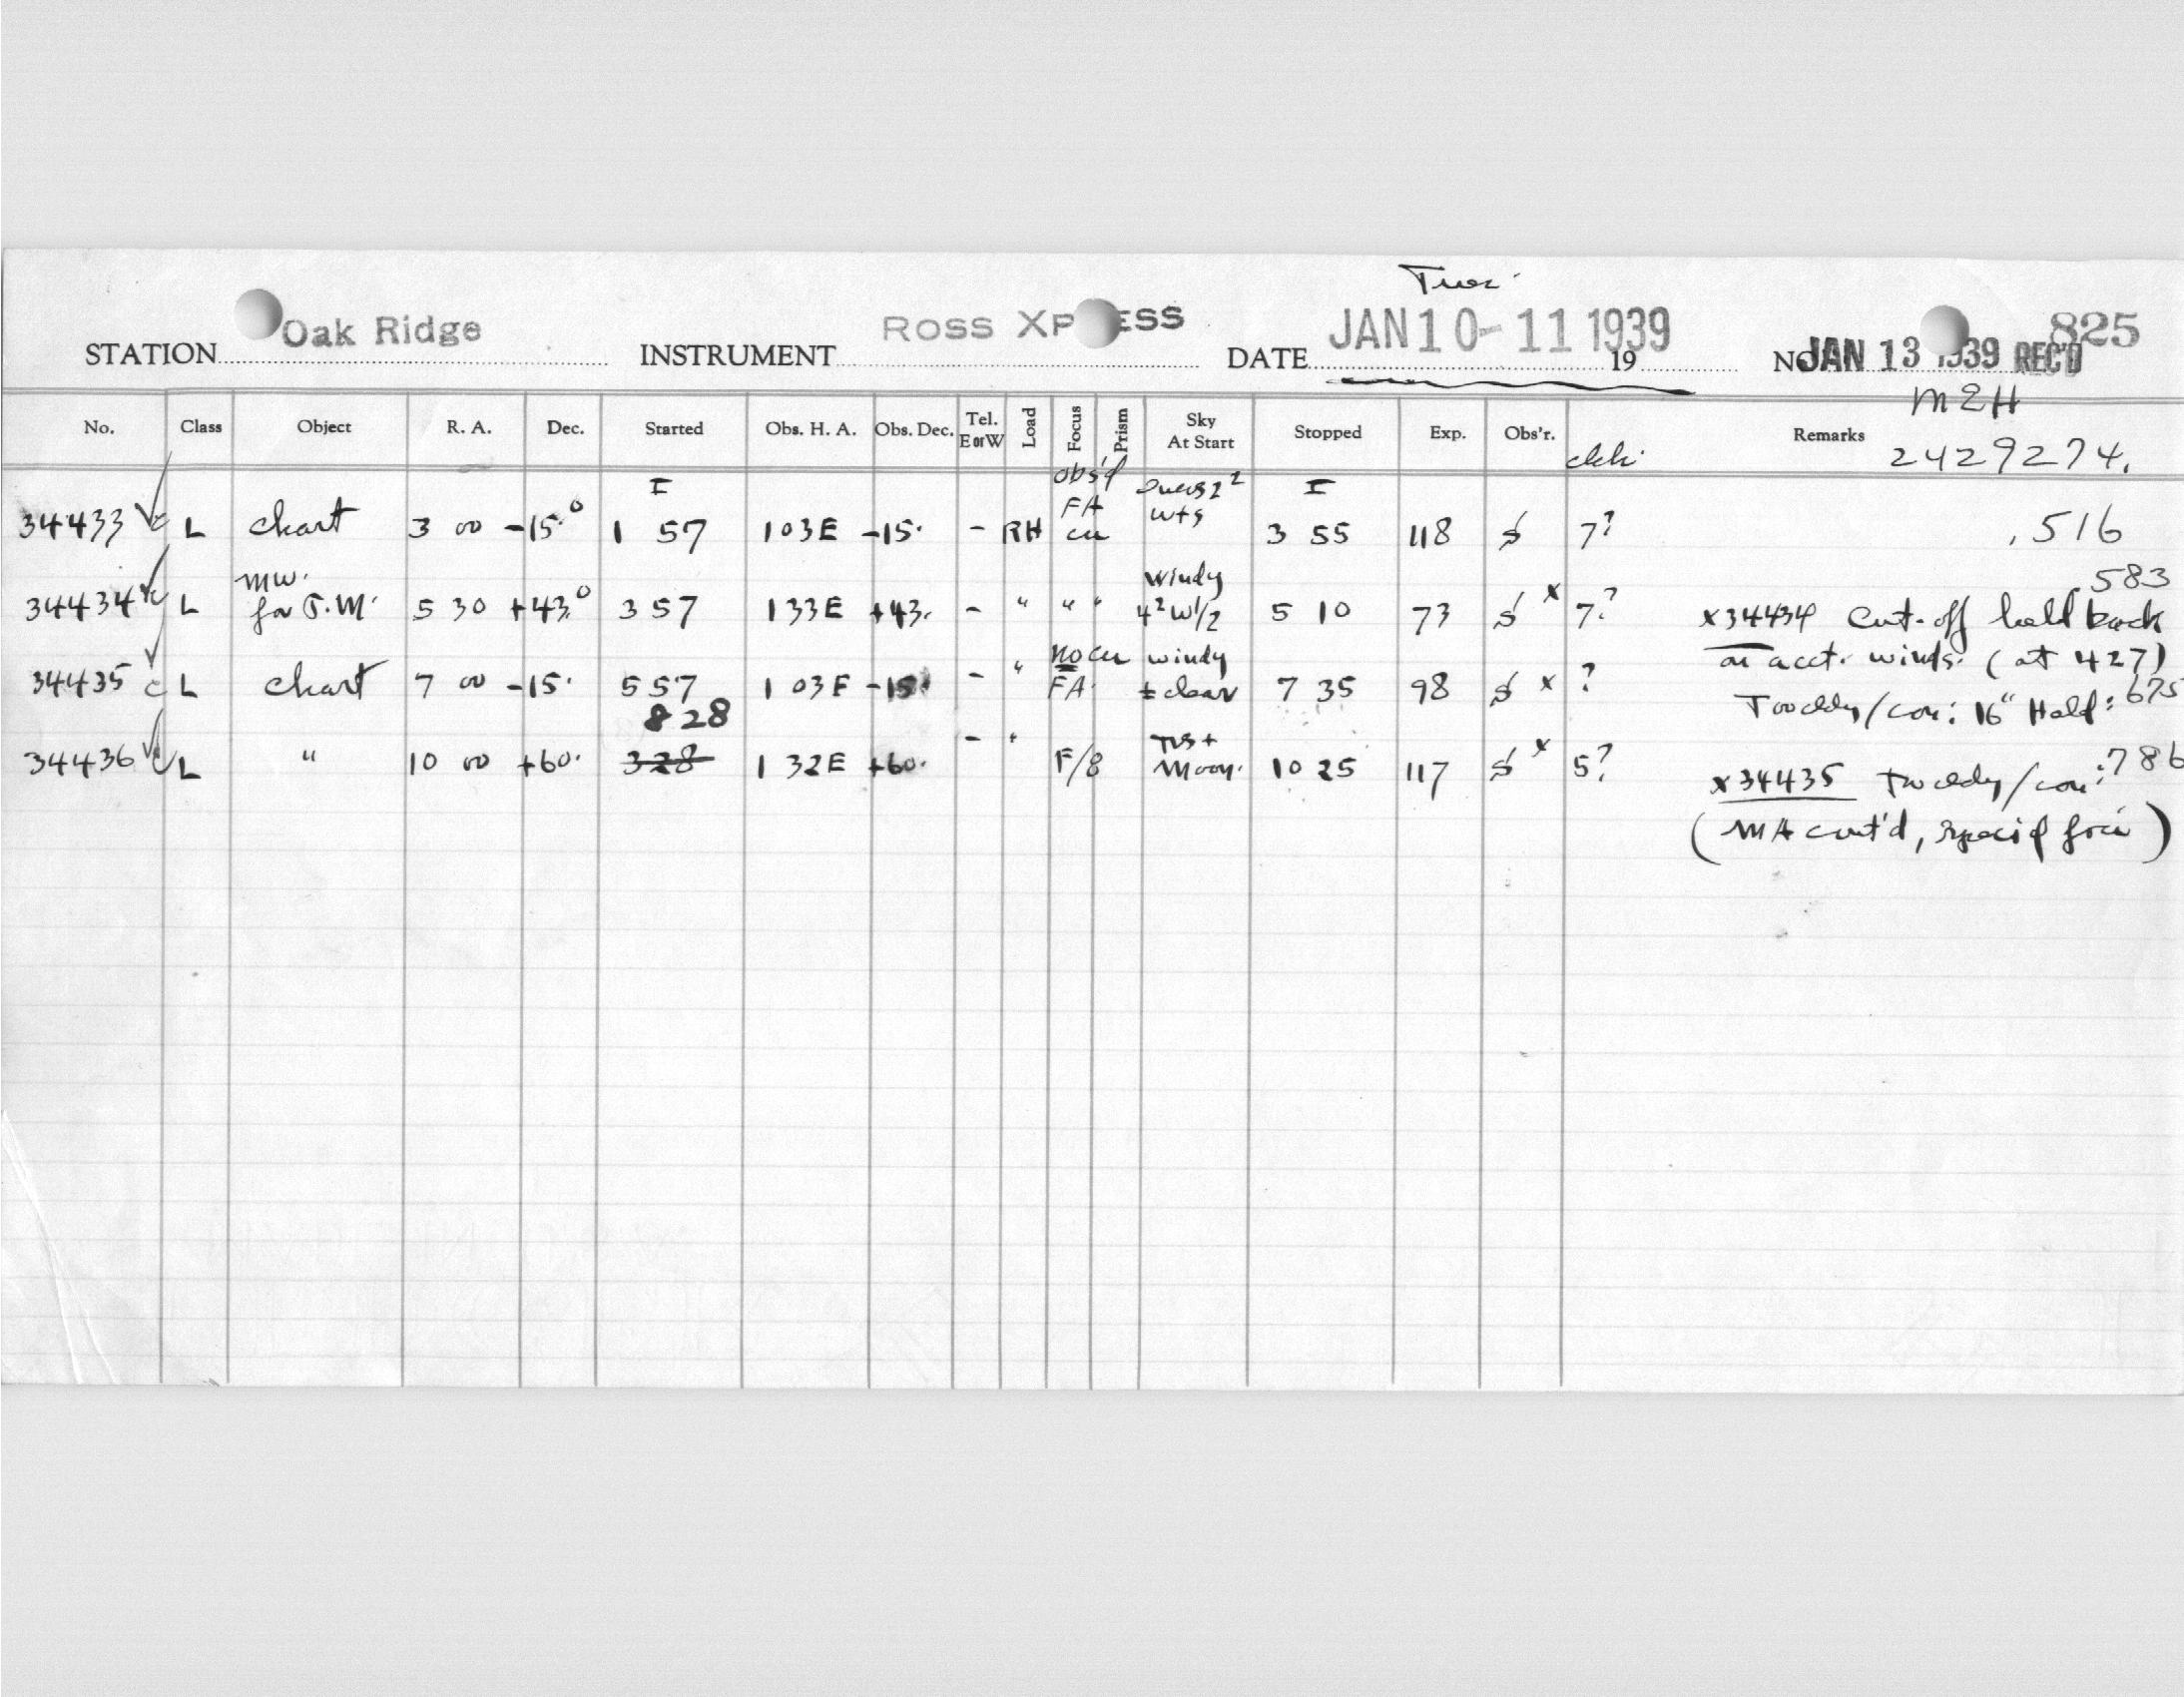 Tues.
STATION Oak Ridge INSTRUMENT ROSS XP ESS DATE JAN 10-11 1939 19 NO. JAN 13 1939 REC'D 825
MEH
No. Class Object R. A. Dec. Started Obs. H. A. Obs. Dec. Tel. E or W Load Focus Prism Sky At Start Stopped Exp. Obs'r. Remarks
2429274.
I obs'd I
34433 L chart 3 00 -15.° 1 57 103E -15. - RH FA cu 3 55 118 S 7? .516
34434 L mw. for T.M. 5 30 +43.° 3 57 133E +43. - " " " windy 4² W1/2 5 10 73 S x 7? .583
x34434 Cut-off held back
on acct. winds. (at 427)
34435 c L chart 7 00 -15. 5 57 1 03E -15. - " no cu FA. windy ± clear 7 35 98 S x ?
/con: 16" Hold: 675
34436 L " 10 00 +60. 8 28 328 1 32E +60. - " F/8 Moon. 10 25 117 S x 5? :786
x34435 /con:
(MA cont'd, foci)